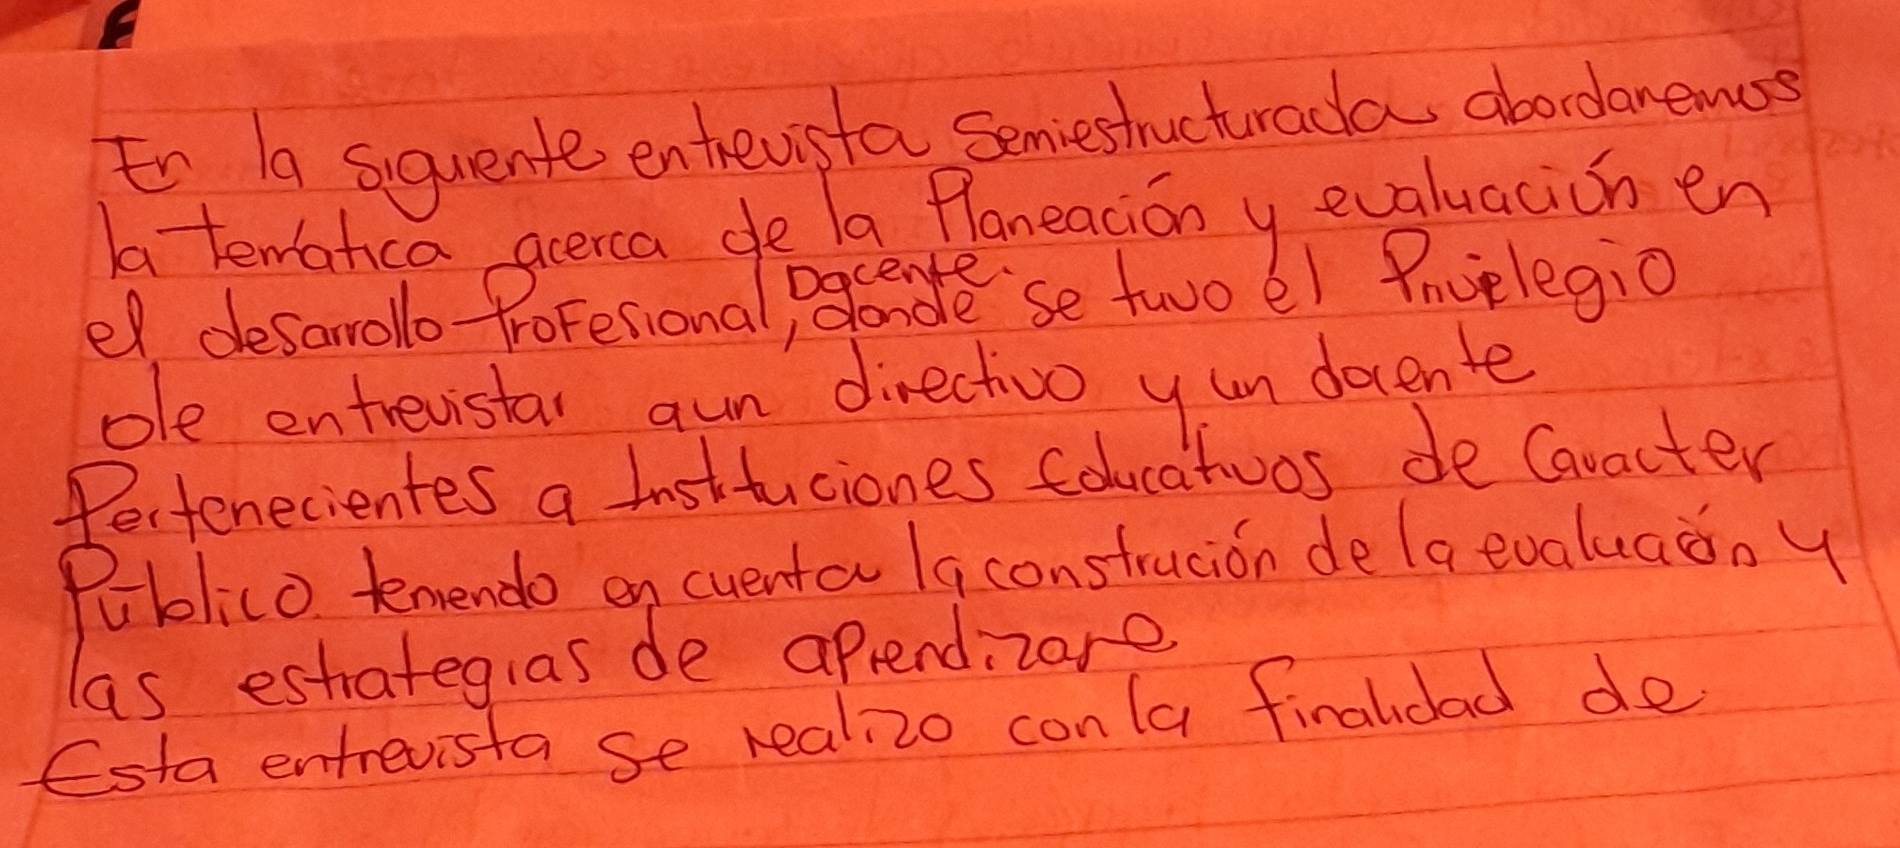 En la siguiente entrevista Semiestructurada abordaremos
la temática acerca de la Planeación y evaluación en
el desarrollo Profesional Docente, donde se tuvo el Privilegio
de entrevistar aun directivo y un docente
Pertenecientes a Instituciones Educativos de Caracter
Público teniendo en cuenta la construción de la evaluación y
las estrategias de aprendizare
Esta entrevista se realizo con la finalidad de